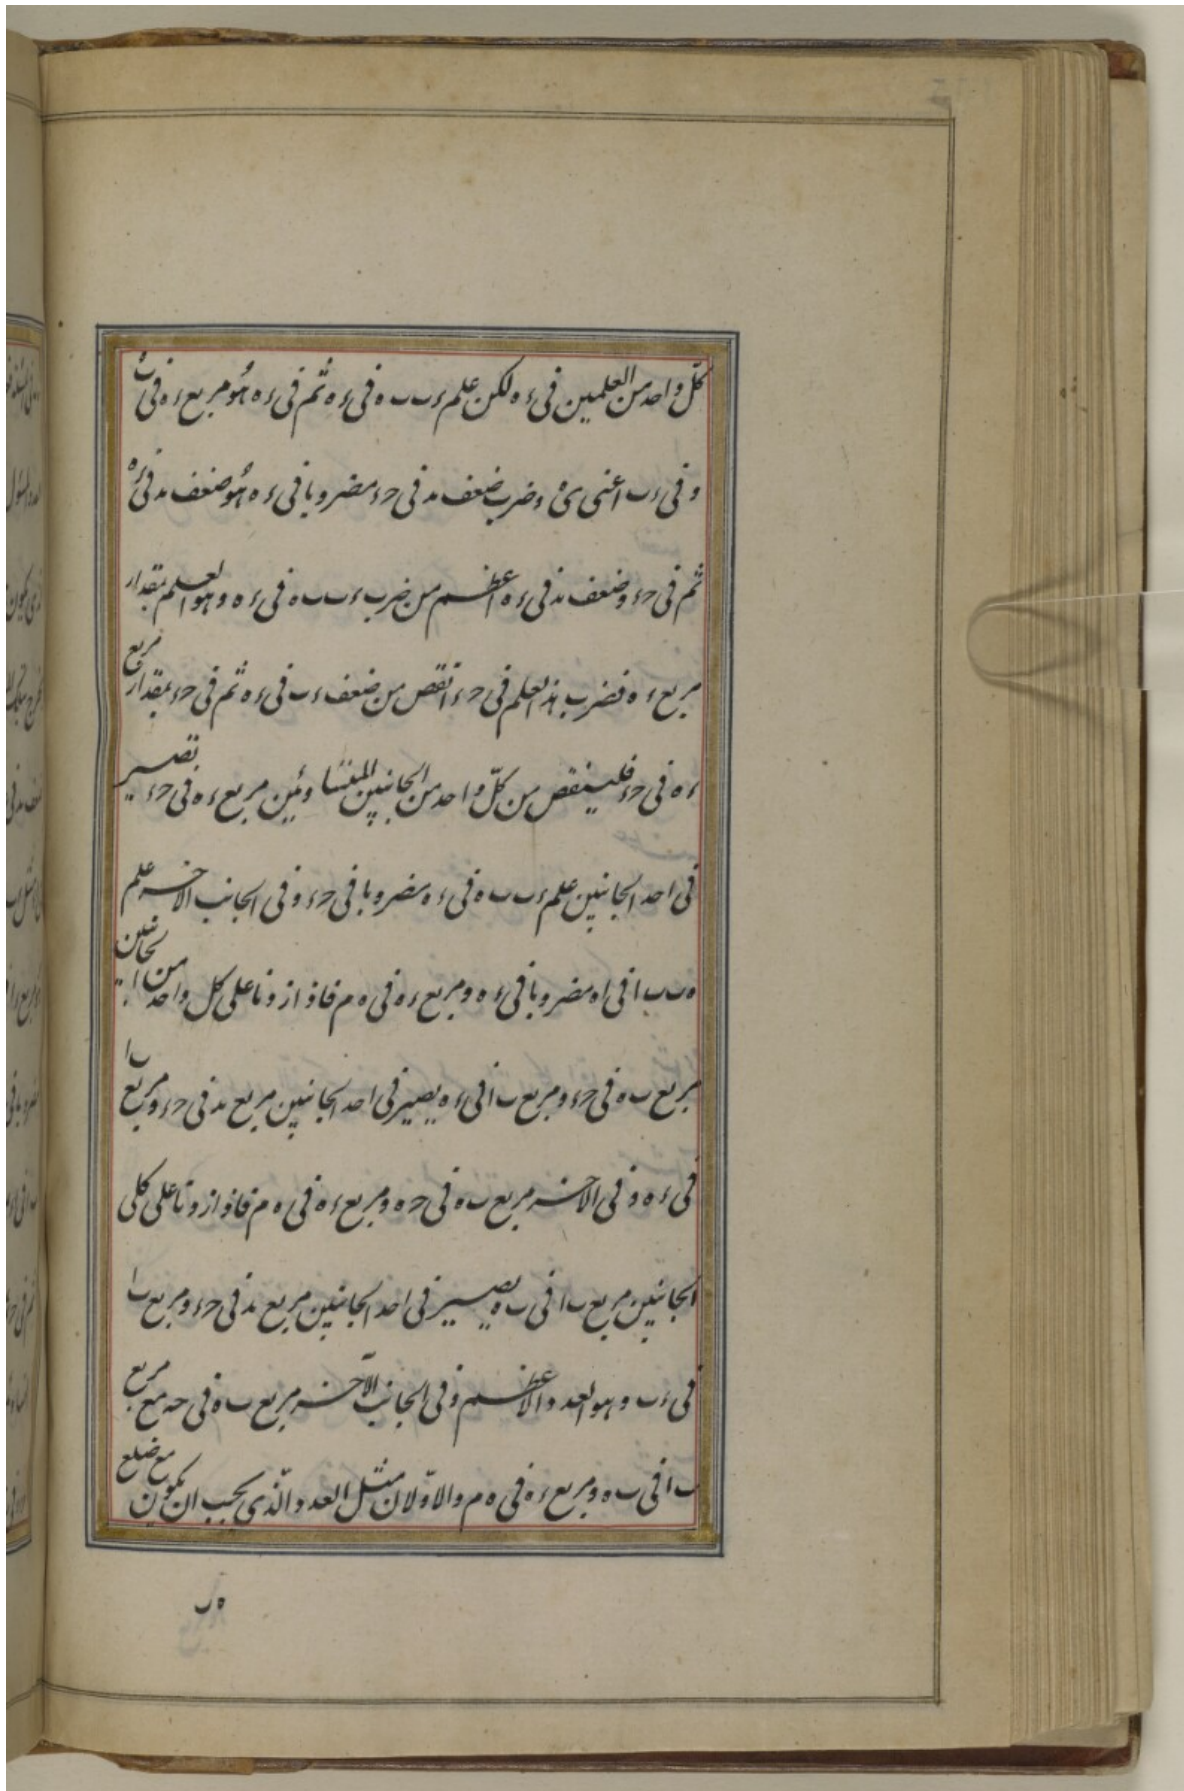 كلّ واحد من العلمين فى ء ه لكن علم ء ب ب ه فى ء ه ثم فى ء ه هُو مربع ء ه فى ب
و فى ء ب اعنى ى ه و ضرب ضعف ب د فى ح ء مضروبا فى ء ه هُو ضعف ب د فى ء ه
ثم فى ح ء و ضعف ب د فى ء ه اعظم من ضرب ء ب ب ه فى ء ه و هو العلم بمقدار
مربع ء ه فضرب هذا العلم فى ح ء انقص من ضعف ء ب فى ء ه ثم فى ح ء بمقدار مربع
ء ه فى ح ء فلينقص من كلّ واحد من الجانبين المتساوئين مربع ء ه فى ح ء تصير
فى احد الجانبين علم ء ب ب ه فى ء ه مضروبا فى ح ء و فى الجانب الاخر علم
ه ب ب ا فى ا ه مضروبا فى ء ه و مربع ء ه فى ه م فاذا زدنا على كل واحد من الجانبين
مربع ب ه فى ح ء و مربع ب ا فى ء ه يصير فى احد الجانبين مربع ب د فى ح ء و مربع ب ا
فى ء ه و فى الاخر مربع ب ه فى ح ه و مربع ء ه فى ه م فاذا زدنا على كلى
الجانبين مربع ب ا فى ب ه يصير فى احد الجانبين مربع ب د فى ح ء و مربع ب ا
فى ء ب و هو العدد الاعظم و فى الجانب الآخر مربع ب ه فى حه مع مربع
ب ا فى ب ه و مربع ء ه فى ه م و الاوّلان مثل العدد الّذى يجب ان يكون مع ضلع
ه ب